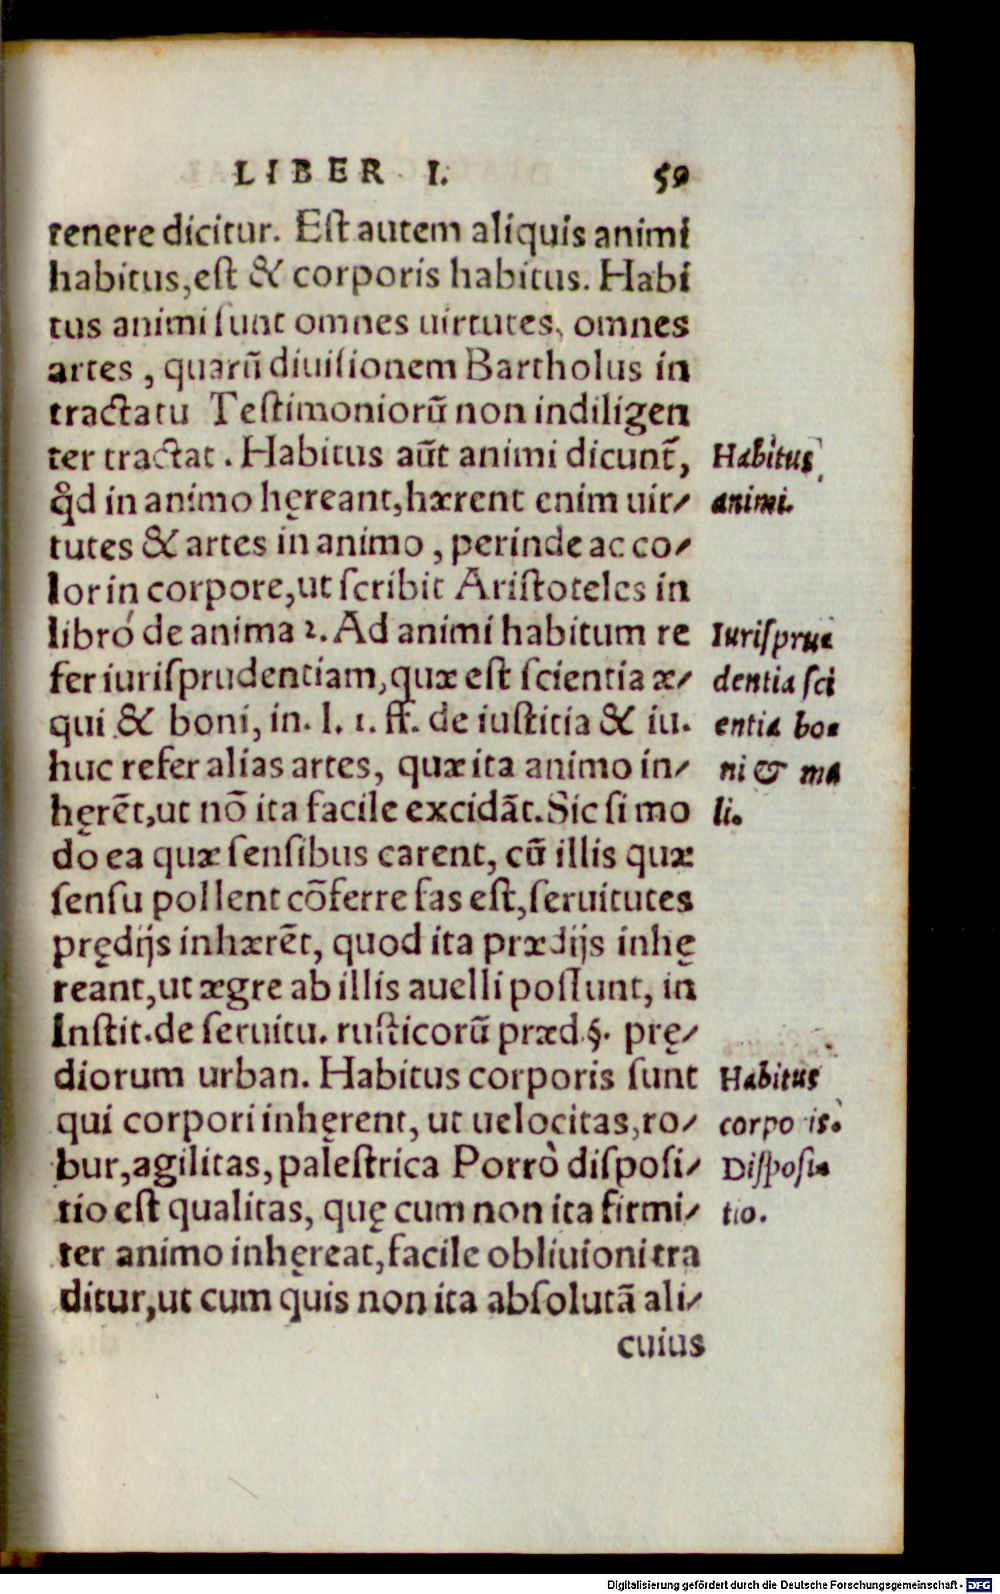 LIBER I. 59
tenere dicitur. Est autem aliquis animi
habitus, est & corporis habitus. Habi
tus animi sunt omnes uirtutes, omnes
artes, quarũ diuisionem Bartholus in
tractatu Testimoniorũ non indiligen
ter tractat. Habitus aũt animi dicunt̃,
qd in animo hęreant, hærent enim uir-
tutes & artes in animo, perinde ac co-
lor in corpore, ut scribit Aristoteles in
libro de anima 2. Ad animi habitum re
fer iurisprudentiam, quæ est scientia æ-
qui & boni, in. l. 1. ff. de iusticia & iu.
huc refer alias artes, quæ ita animo in-
hęrẽt, ut nõ ita facile excidãt. Sic si mo
do ea quæ sensibus carent, cũ illis quæ
sensu pollent cõferre fas est, seruitutes
prędijs inhærẽt, quod ita prædijs inhę
reant, ut ægre ab illis auelli possunt, in
Instit. de seruitu. rusticorũ præd. §. prę-
diorum urban. Habitus corporis sunt
qui corpori inhęrent, ut uelocitas, ro-
bur, agilitas, palestrica Porrò disposi-
tio est qualitas, quę cum non ita firmi-
ter animo inhęreat, facile obliuioni tra
ditur, ut cum quis non ita absolutã ali-
cuius
Habitus
animi.
Iurispru-
dentia sci
entia bo-
ni & ma
li.
Habitus
corpo is.
Disposi-
tio.
Digitalisierung gefördert durch die Deutsche Forschungsgemeinschaft - DFG